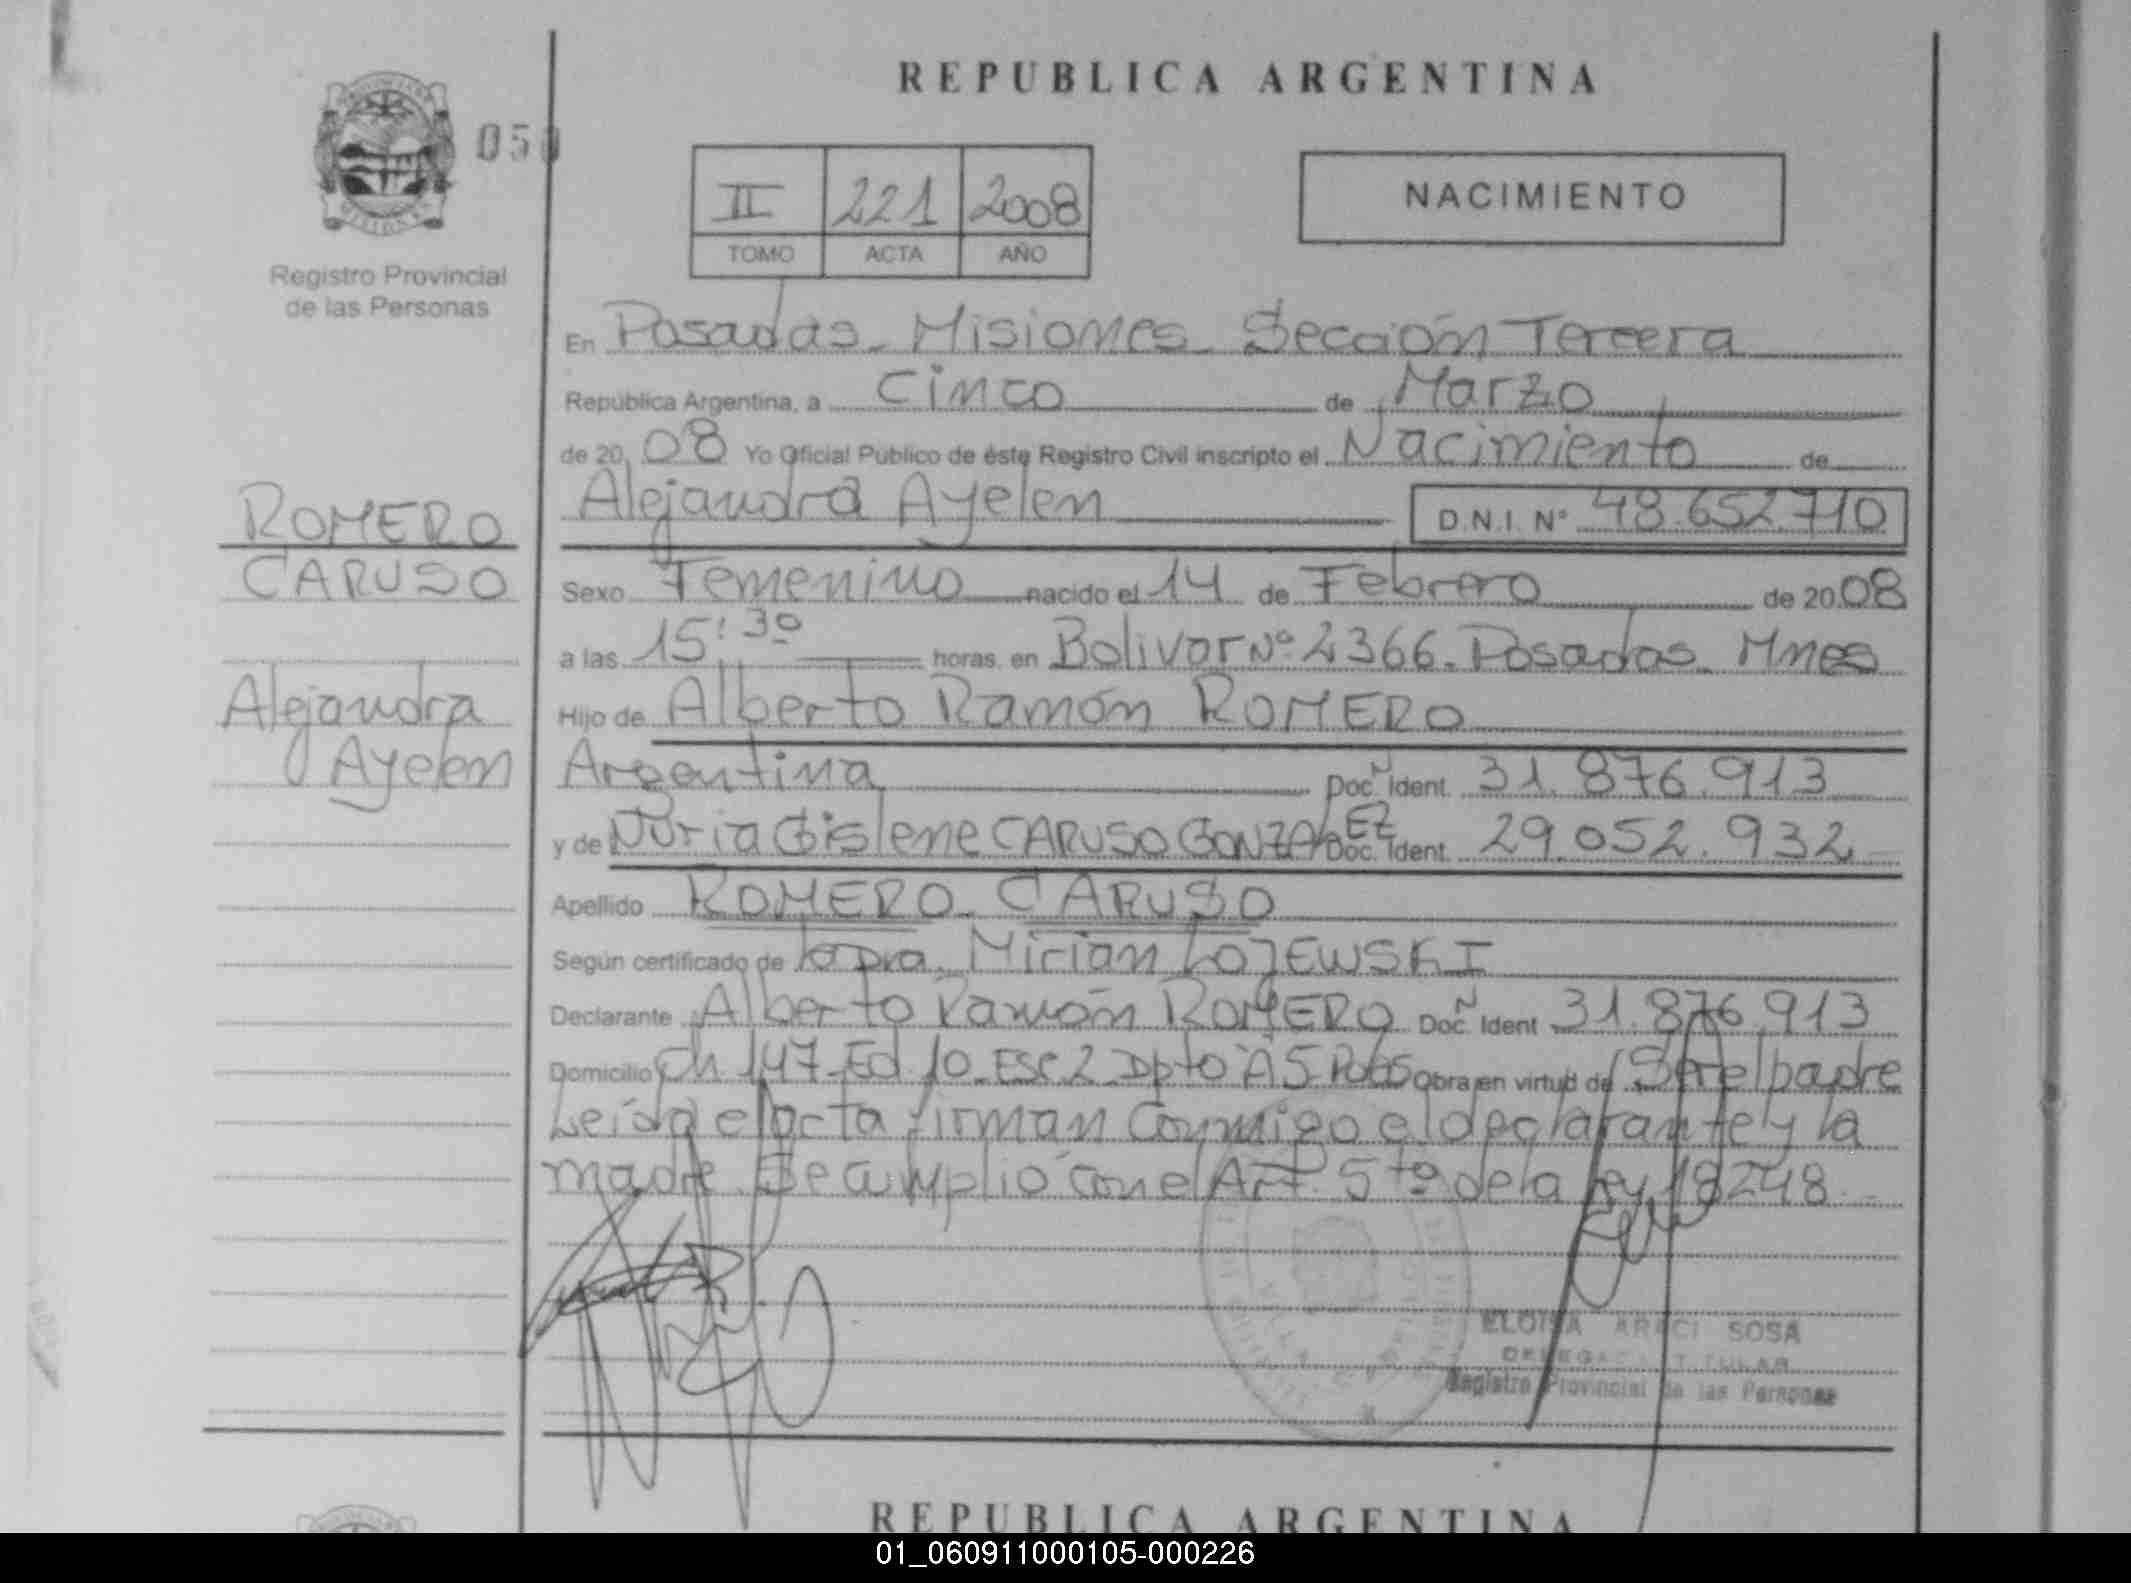 REPUBLICA ARGENTINA
05
II 221 2008
TOMO ACTA AÑO
NACIMIENTO
Registro Provincial
de las Personas
En Posadas - Misiones - Sección Tercera
República Argentina, a Cinco de Marzo
de 20 08 Yo Oficial Público de éste Registro Civil inscripto el Nacimiento de
Alejandra Ayelen D.N.I. Nº 48.652.710
ROMERO
CARUSO
Alejandra
Ayelen
Sexo Femenino nacido el 14 de Febrero de 20 08
a las 15:30 horas, en Bolivar Nº 2366. Posadas - Mnes
Hijo de Alberto Ramón ROMERO
Argentina Doc. Ident. 31.876.913
y de Nuria Gislene CARUSO GONZALEZ Doc. Ident. 29.052.932
Apellido ROMERO CARUSO
Según certificado de la Dra. Mirian LOJEWSKI
Declarante Alberto Ramón ROMERO Doc. Ident 31.876.913
Domicilio Ch 147-Ed 10-Esc 2-Dpto A5 Obra en virtud de Ser el padre
Leida el acta firman Conmigo el declarante y la
madre. Se cumplió con el Art. 5to de la ley 18248
ELOISA ARACI SOSA
DELEGADA TITULAR
Registro Provincial de las Personas
REPUBLICA ARGENTINA
01_060911000105-000226